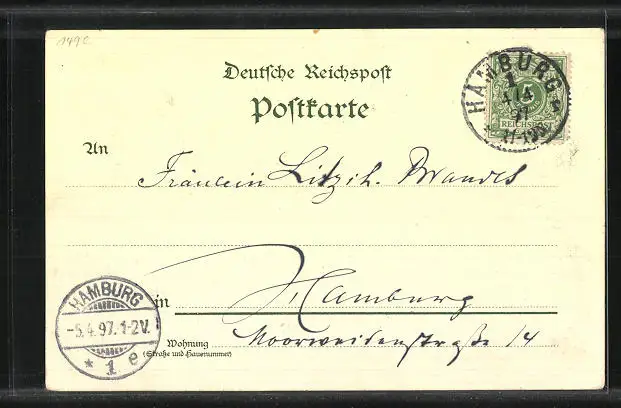 149c
Deutsche Reichspost
Postkarte
HAMBURG
1
4/4
97
11-12
REICHSPOST
An
Fräulein Brandes
in Hamburg
Moorweidenstraße 14
Wohnung
(Straße und Hausnummer)
HAMBURG
-5.4.97.1-2V.
* 1 e